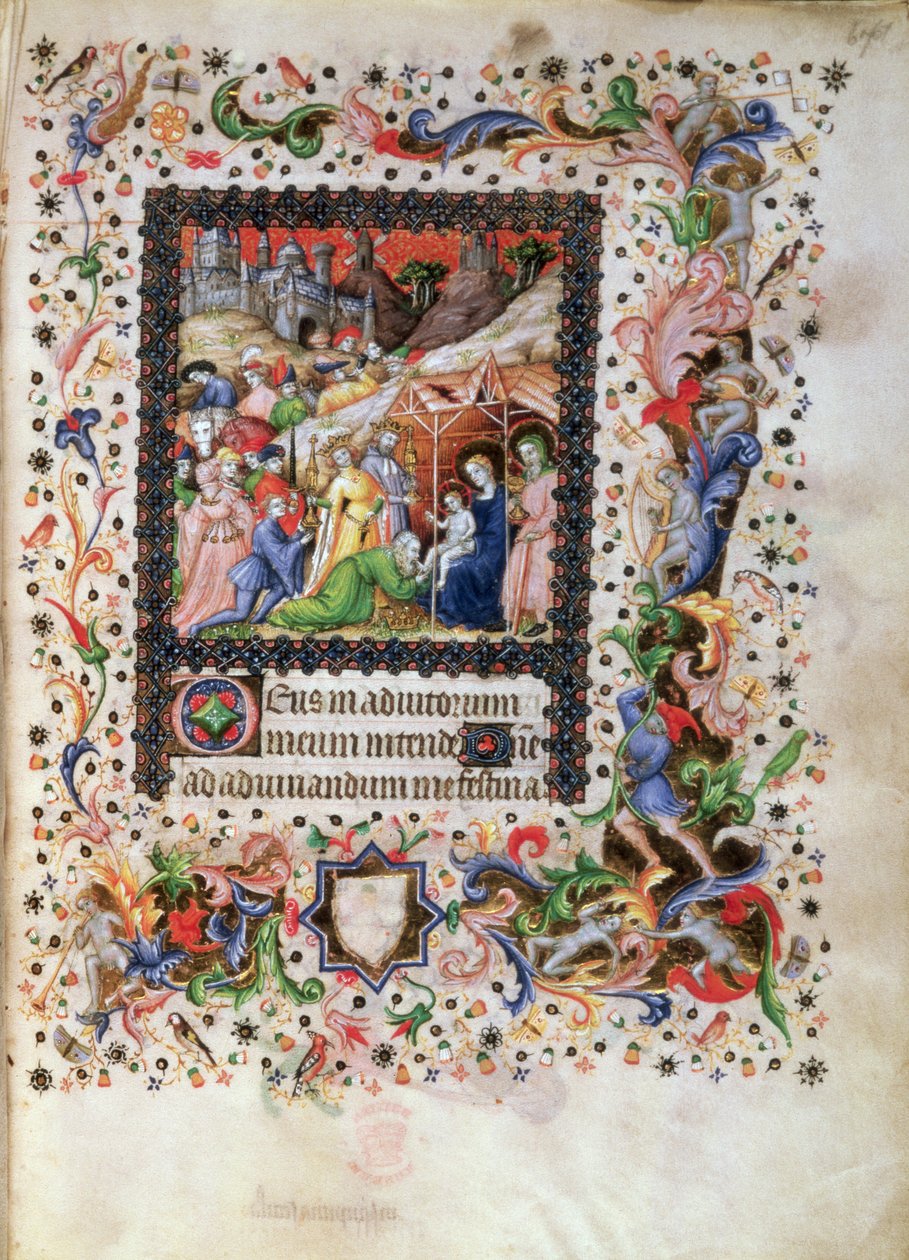 Deus in adiutorium
meum intende Dñe
ad adiuuandum me festina